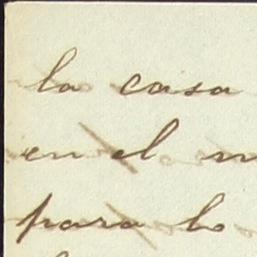 la casa
en el
para lo